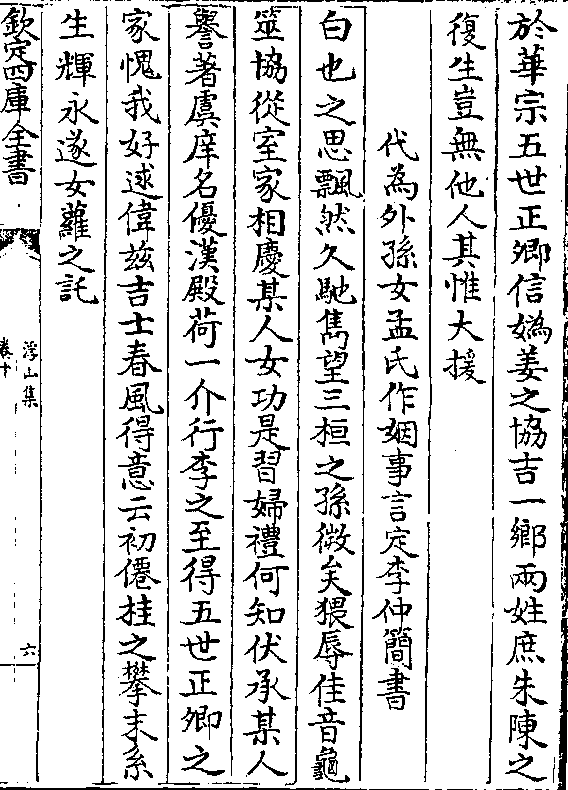 於華宗五世正卿信媯姜之協吉一鄉兩姓庶朱陳之
復生豈無他人其惟大援
代為外孫女孟氏作姻事言定李仲簡書
白也之思飄然久馳雋望三桓之孫微矣猥辱佳音龜
筮協從室家相慶某人女功是習婦禮何知伏承某人
譽著虞庠名優漢殿荷一介行李之至得五世正卿之
家愧我好逑偉兹吉士春風得意云初僊桂之攀末糸
生輝永遂女蘿之託
欽定四庫全書
浮山集
卷十
六